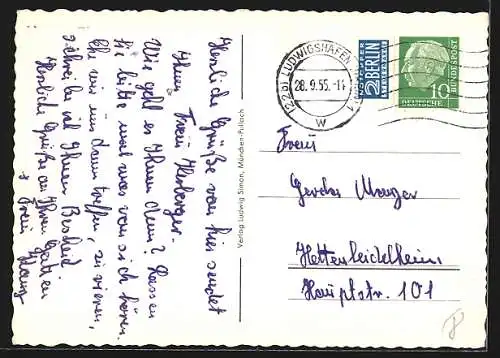 Herzliche Grüße von hier sendet
Ihnen Frau Herberger.
Wie geht es Ihnen denn? Lassen
Sie bitte mal was von sich hören.
Ehe wir uns dann treffen, in
schreibe ich Ihnen Bescheid.
Herzliche Grüße an Ihren Gatten
+ Frau
Verlag Ludwig Simon, München-Pullach
(22b) LUDWIGSHAFEN
28.9.55.-11
W
NOTOPFER
2 BERLIN
STEUERMARKE
DEUTSCHE
BUNDESPOST
10
Frau
Gerda
Hettenleidelheim
Hauptstr. 101